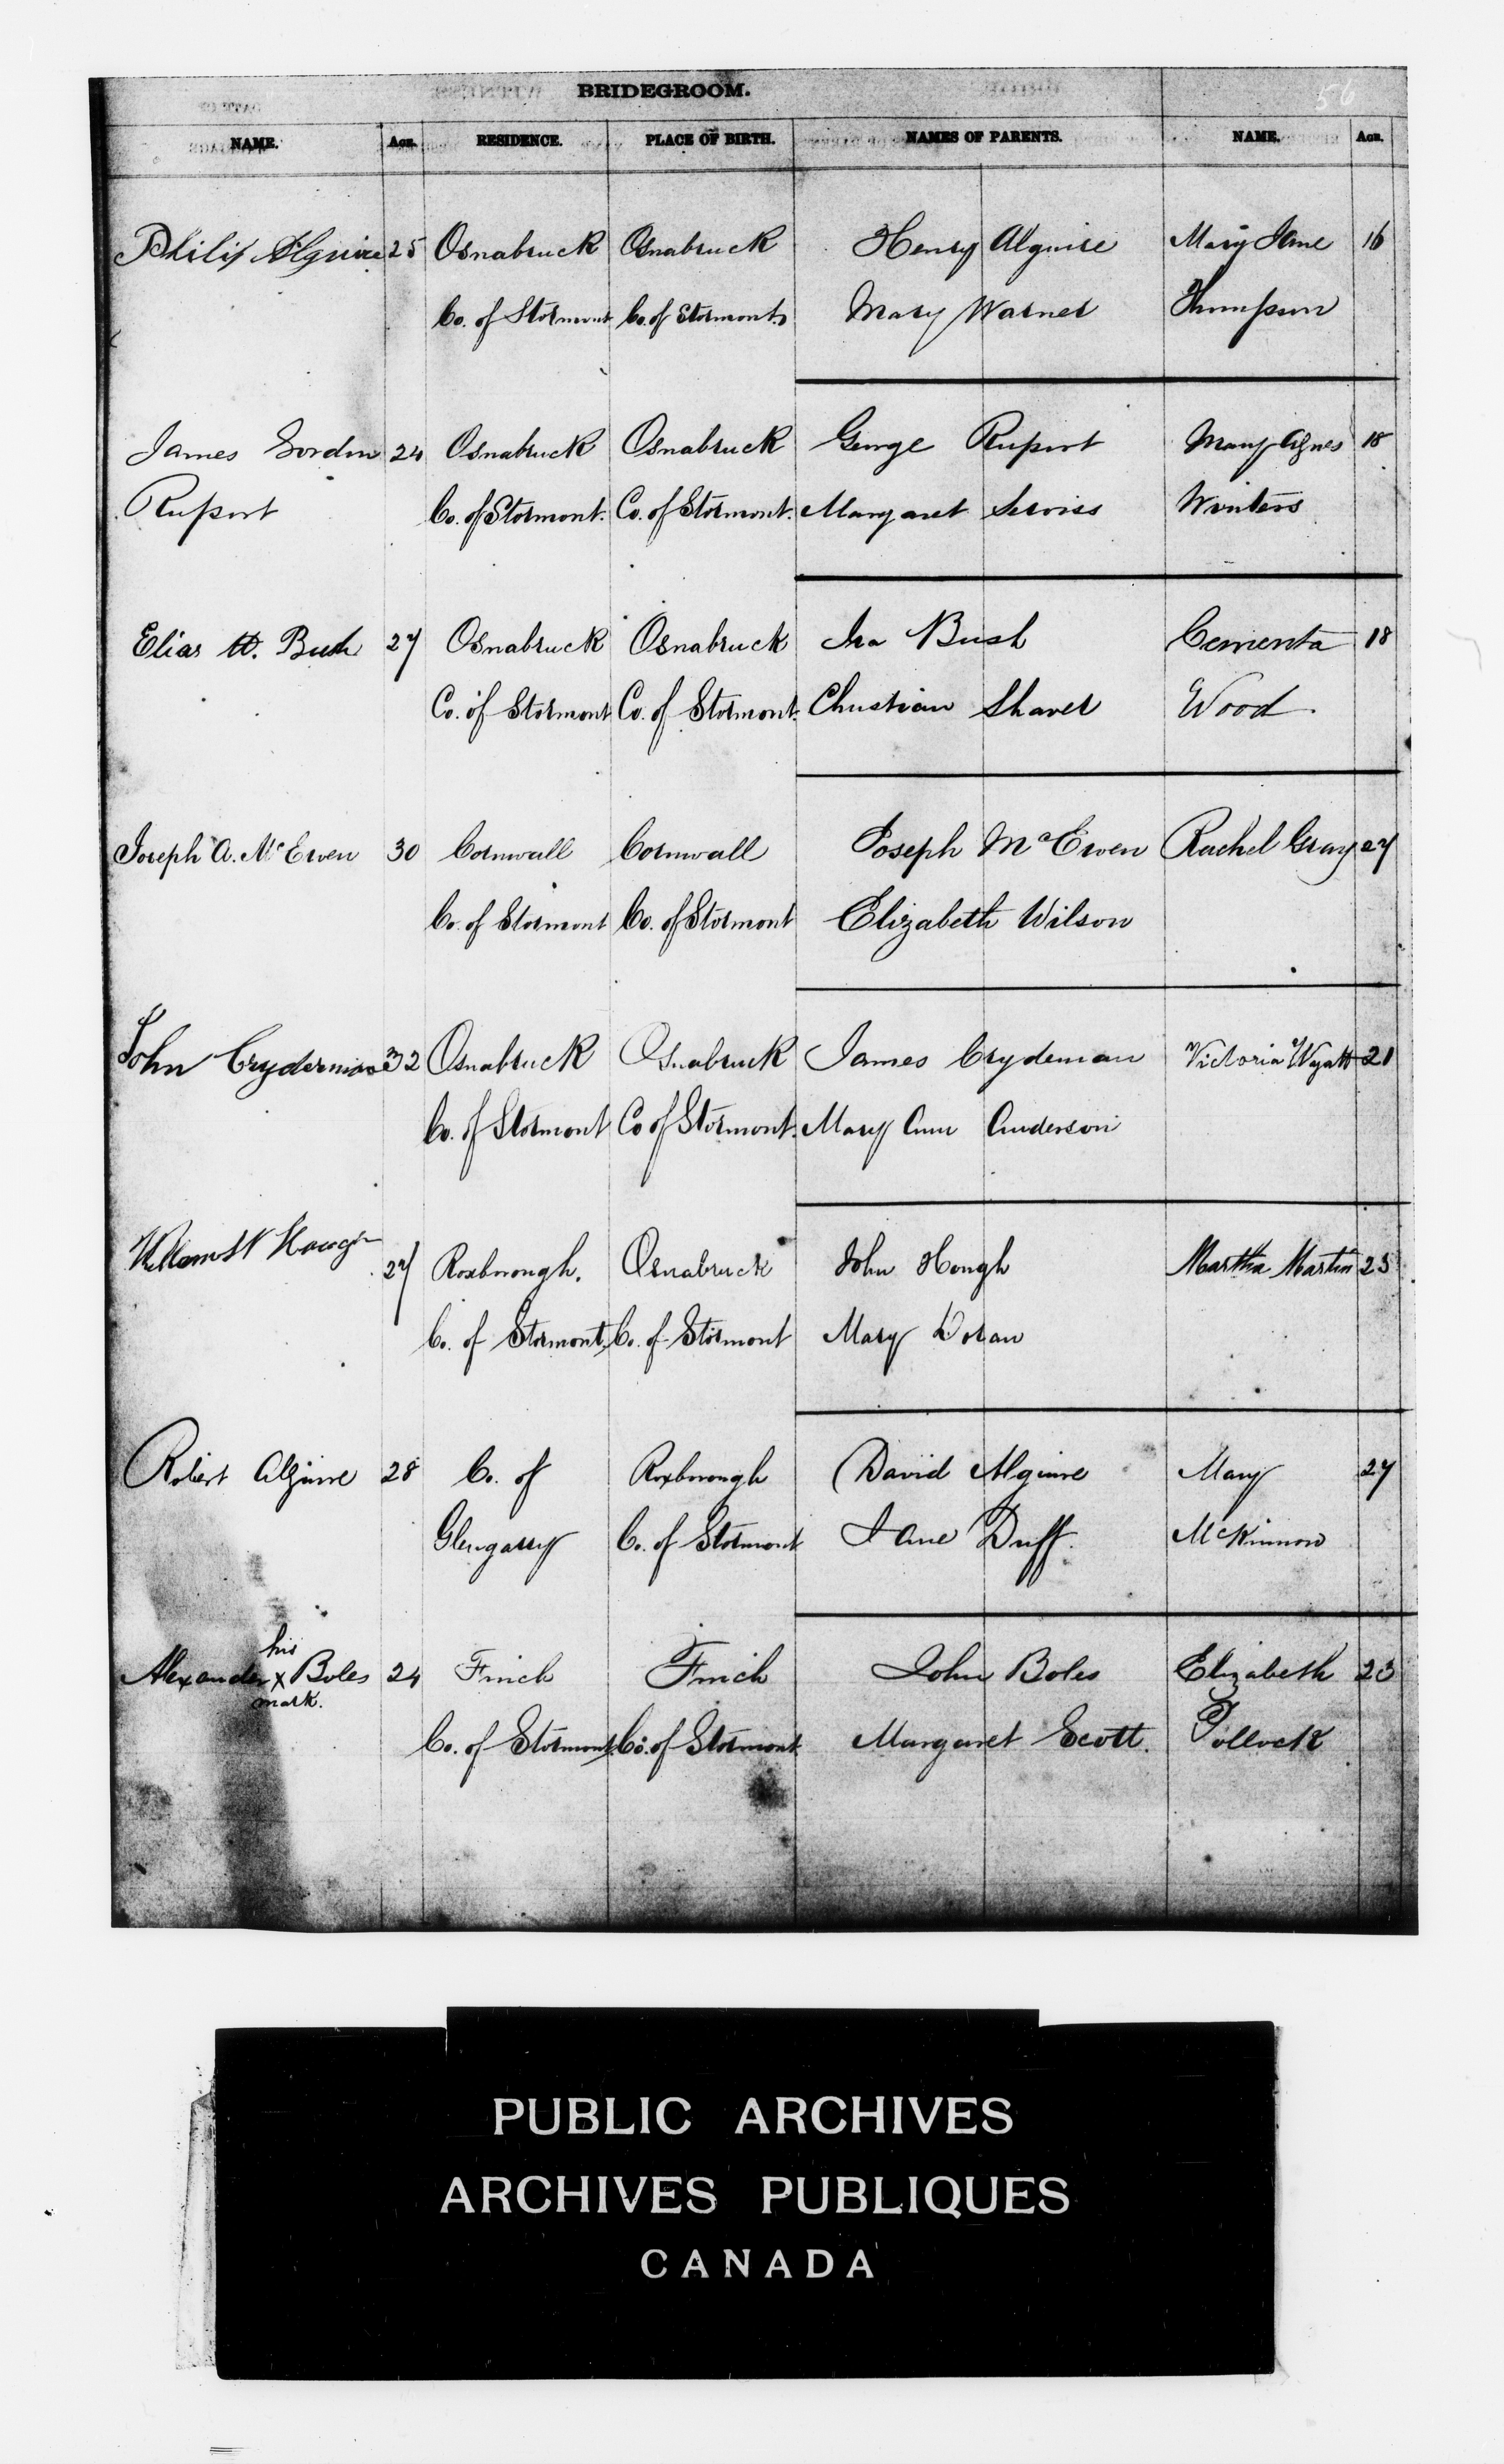 56
BRIDEGROOM.
NAME. AGE. RESIDENCE. PLACE OF BIRTH. NAMES OF PARENTS. NAME. AGE.
Philip Alguire 25 Osnabruck Osnabruck Henry Alguire Mary Jane 16
Co. of Stormont Co. of Stormont Mary Warner Thompson
James Gordon 24 Osnabruck Osnabruck George Rupert Mary Agnes 18
Rupert Co. of Stormont. Co. of Stormont. Margaret Serviss Winters
Elias W. Bush 27 Osnabruck Osnabruck Ira Bush Cementa 18
Co. of Stormont Co. of Stormont. Christian Shaver Wood.
Joseph A. McEwen 30 Cornwall Cornwall Joseph McEwen Rachel Gray 27
Co. of Stormont Co. of Stormont Elizabeth Wilson
John Cryderman 32 Osnabruck Osnabruck James Crydeman Victoria Wyatt 21
Co. of Stormont Co of Stormont. Mary Ann Anderson
27 Roxborough. Osnabruck John Hough Martha Martin 25
Co. of Stormont. Co. of Stormont Mary Doran
Robert Alguire 28 Co. of Roxborough David Alguire Mary 27
Glengarry Co. of Stormont Jane Duff. McKinnon
his
Alexander X Boles 24 Finch Finch John Boles Elizabeth 23
mark.
Co. of Stormont Co. of Stormont Margaret Scott. Pollock
PUBLIC ARCHIVES
ARCHIVES PUBLIQUES
CANADA